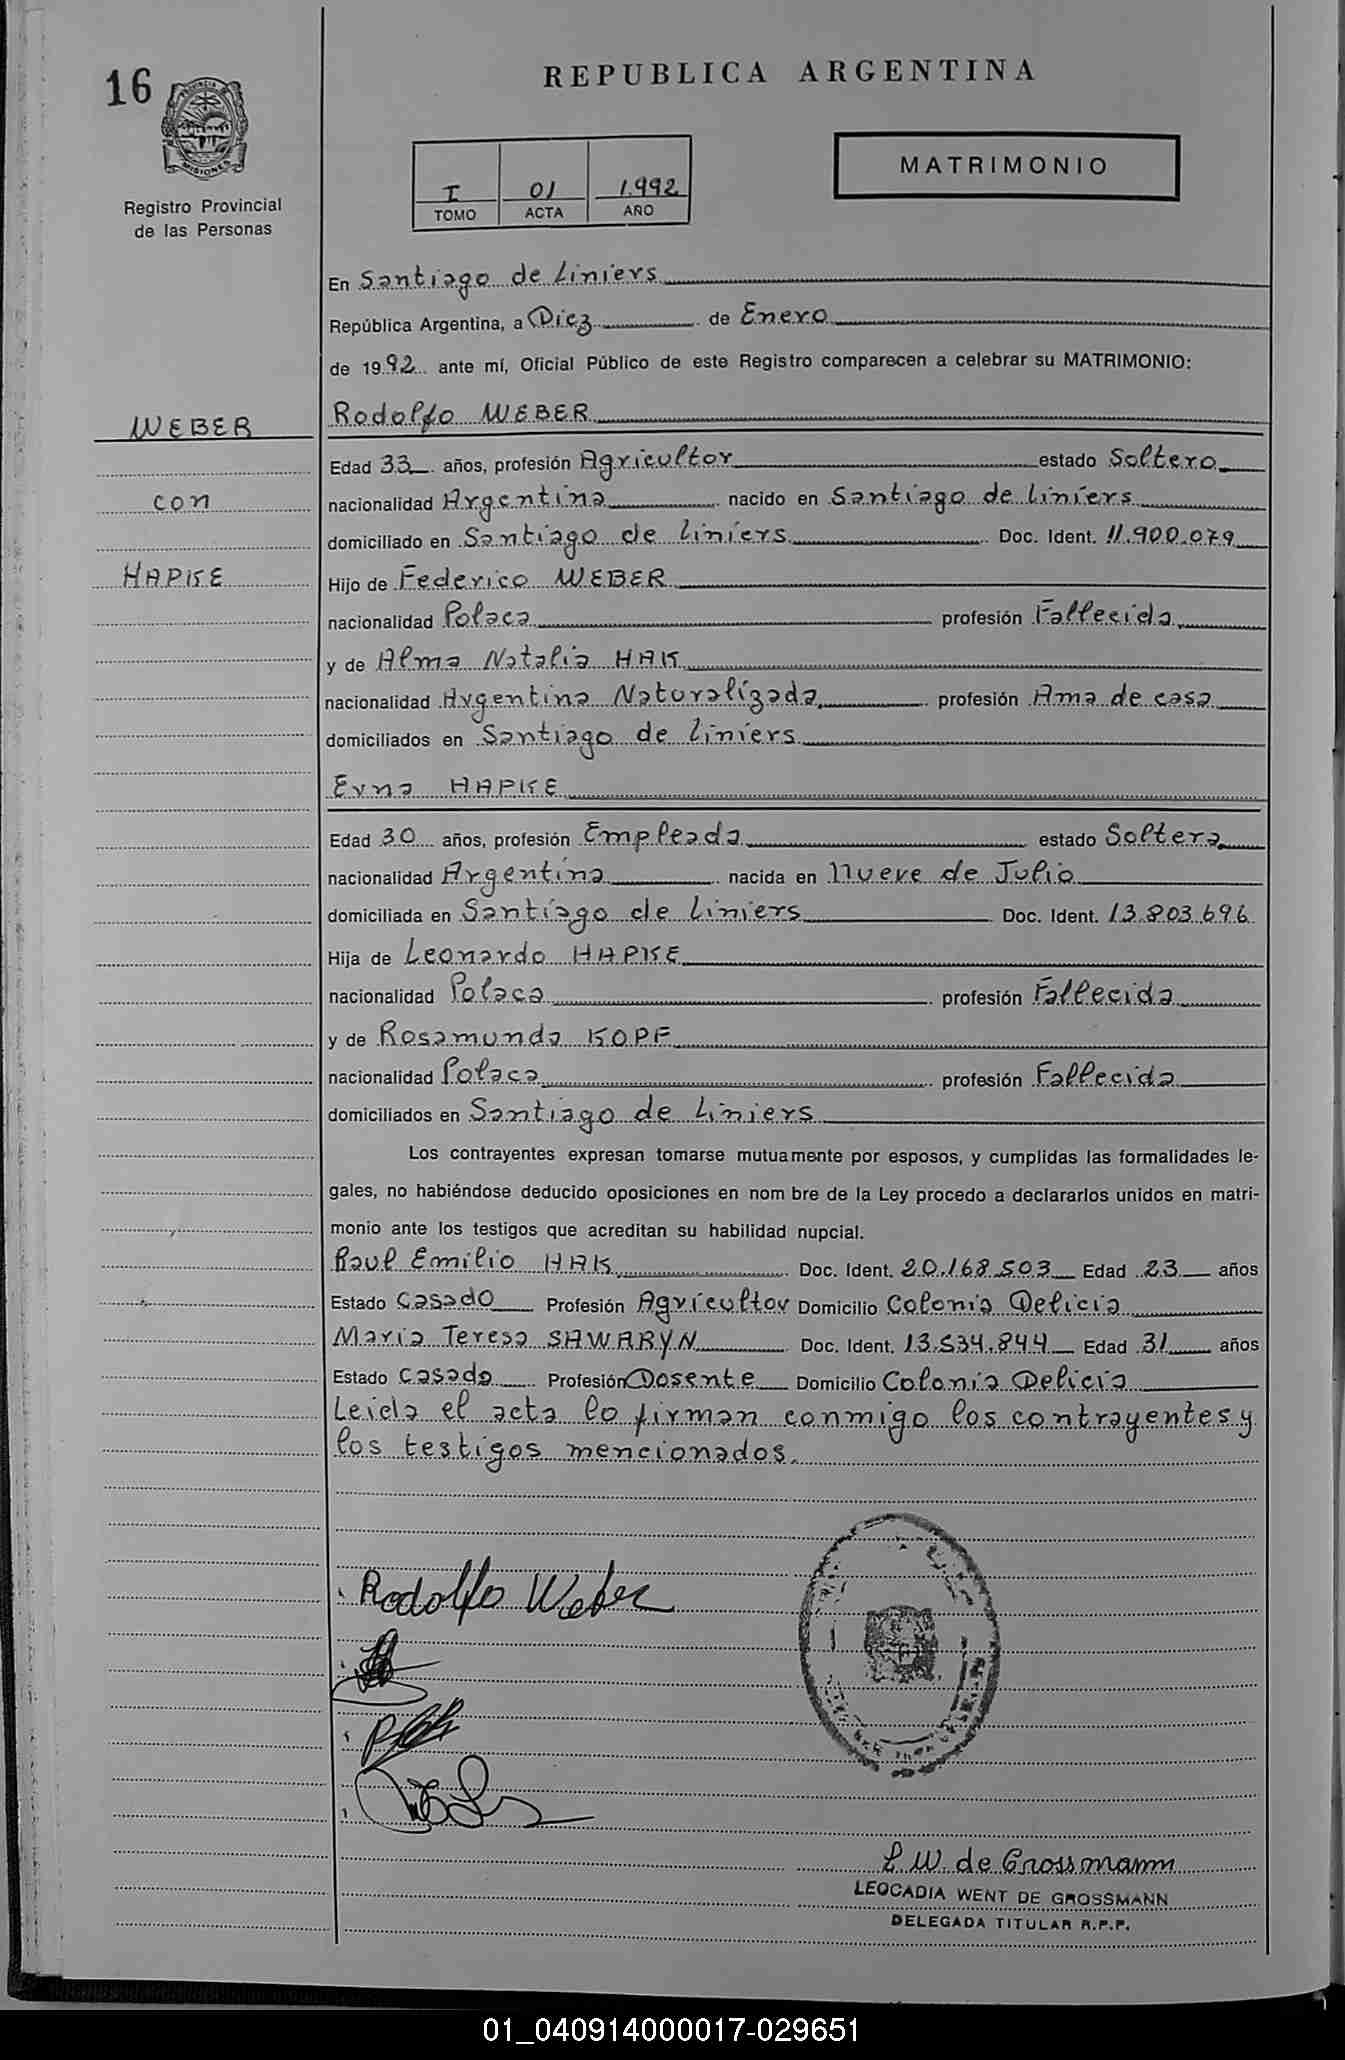 16
REPUBLICA ARGENTINA
PROVINCIA DE
MISIONES
Registro Provincial
de las Personas
MATRIMONIO
I 01 1.992
TOMO ACTA AÑO
En Santiago de Liniers
República Argentina, a Diez de Enero
de 1992 ante mí, Oficial Público de este Registro comparecen a celebrar su MATRIMONIO:
WEBER
con
HAPKE
Rodolfo WEBER
Edad 33 años, profesión Agricultor estado Soltero
nacionalidad Argentina nacido en Santiago de Liniers
domiciliado en Santiago de Liniers Doc. Ident. 11.900.079
Hijo de Federico WEBER
nacionalidad Polaca profesión Fallecida
y de Alma Natalia HAK
nacionalidad Argentina Naturalizada profesión Ama de casa
domiciliados en Santiago de Liniers
Erna HAPKE
Edad 30 años, profesión Empleada estado Soltera
nacionalidad Argentina nacida en Nueve de Julio
domiciliada en Santiago de Liniers Doc. Ident. 13.803.696
Hija de Leonardo HAPKE
nacionalidad Polaca profesión Fallecida
y de Rosamunda KOPF
nacionalidad Polaca profesión Fallecida
domiciliados en Santiago de Liniers
Los contrayentes expresan tomarse mutuamente por esposos, y cumplidas las formalidades le-
gales, no habiéndose deducido oposiciones en nom bre de la Ley procedo a declararlos unidos en matri-
monio ante los testigos que acreditan su habilidad nupcial.
Raul Emilio HAK Doc. Ident. 20.168.503 Edad 23 años
Estado Casado Profesión Agricultor Domicilio Colonia Delicia
Maria Teresa SAWARYN Doc. Ident. 13.534.844 Edad 31 años
Estado Casada Profesión Dosente Domicilio Colonia Delicia
Leida el acta lo firman conmigo los contrayentes y
los testigos mencionados.
Rodolfo Weber
L W de Grossmann
LEOCADIA WENT DE GROSSMANN
DELEGADA TITULAR R.P.P.
01_040914000017-029651